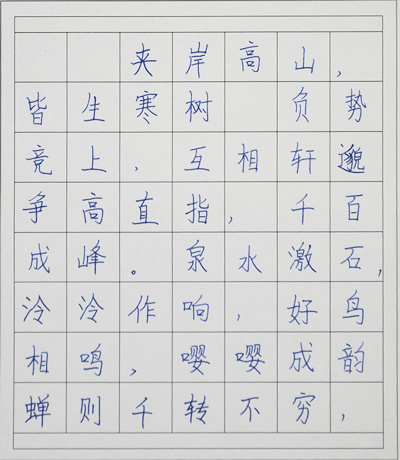 夹岸高山，
皆生寒树 负势
竞上，互相轩邈
争高直指，千百
成峰。泉水激石，
泠泠作响，好鸟
相鸣，嘤嘤成韵
蝉则千转不穷，